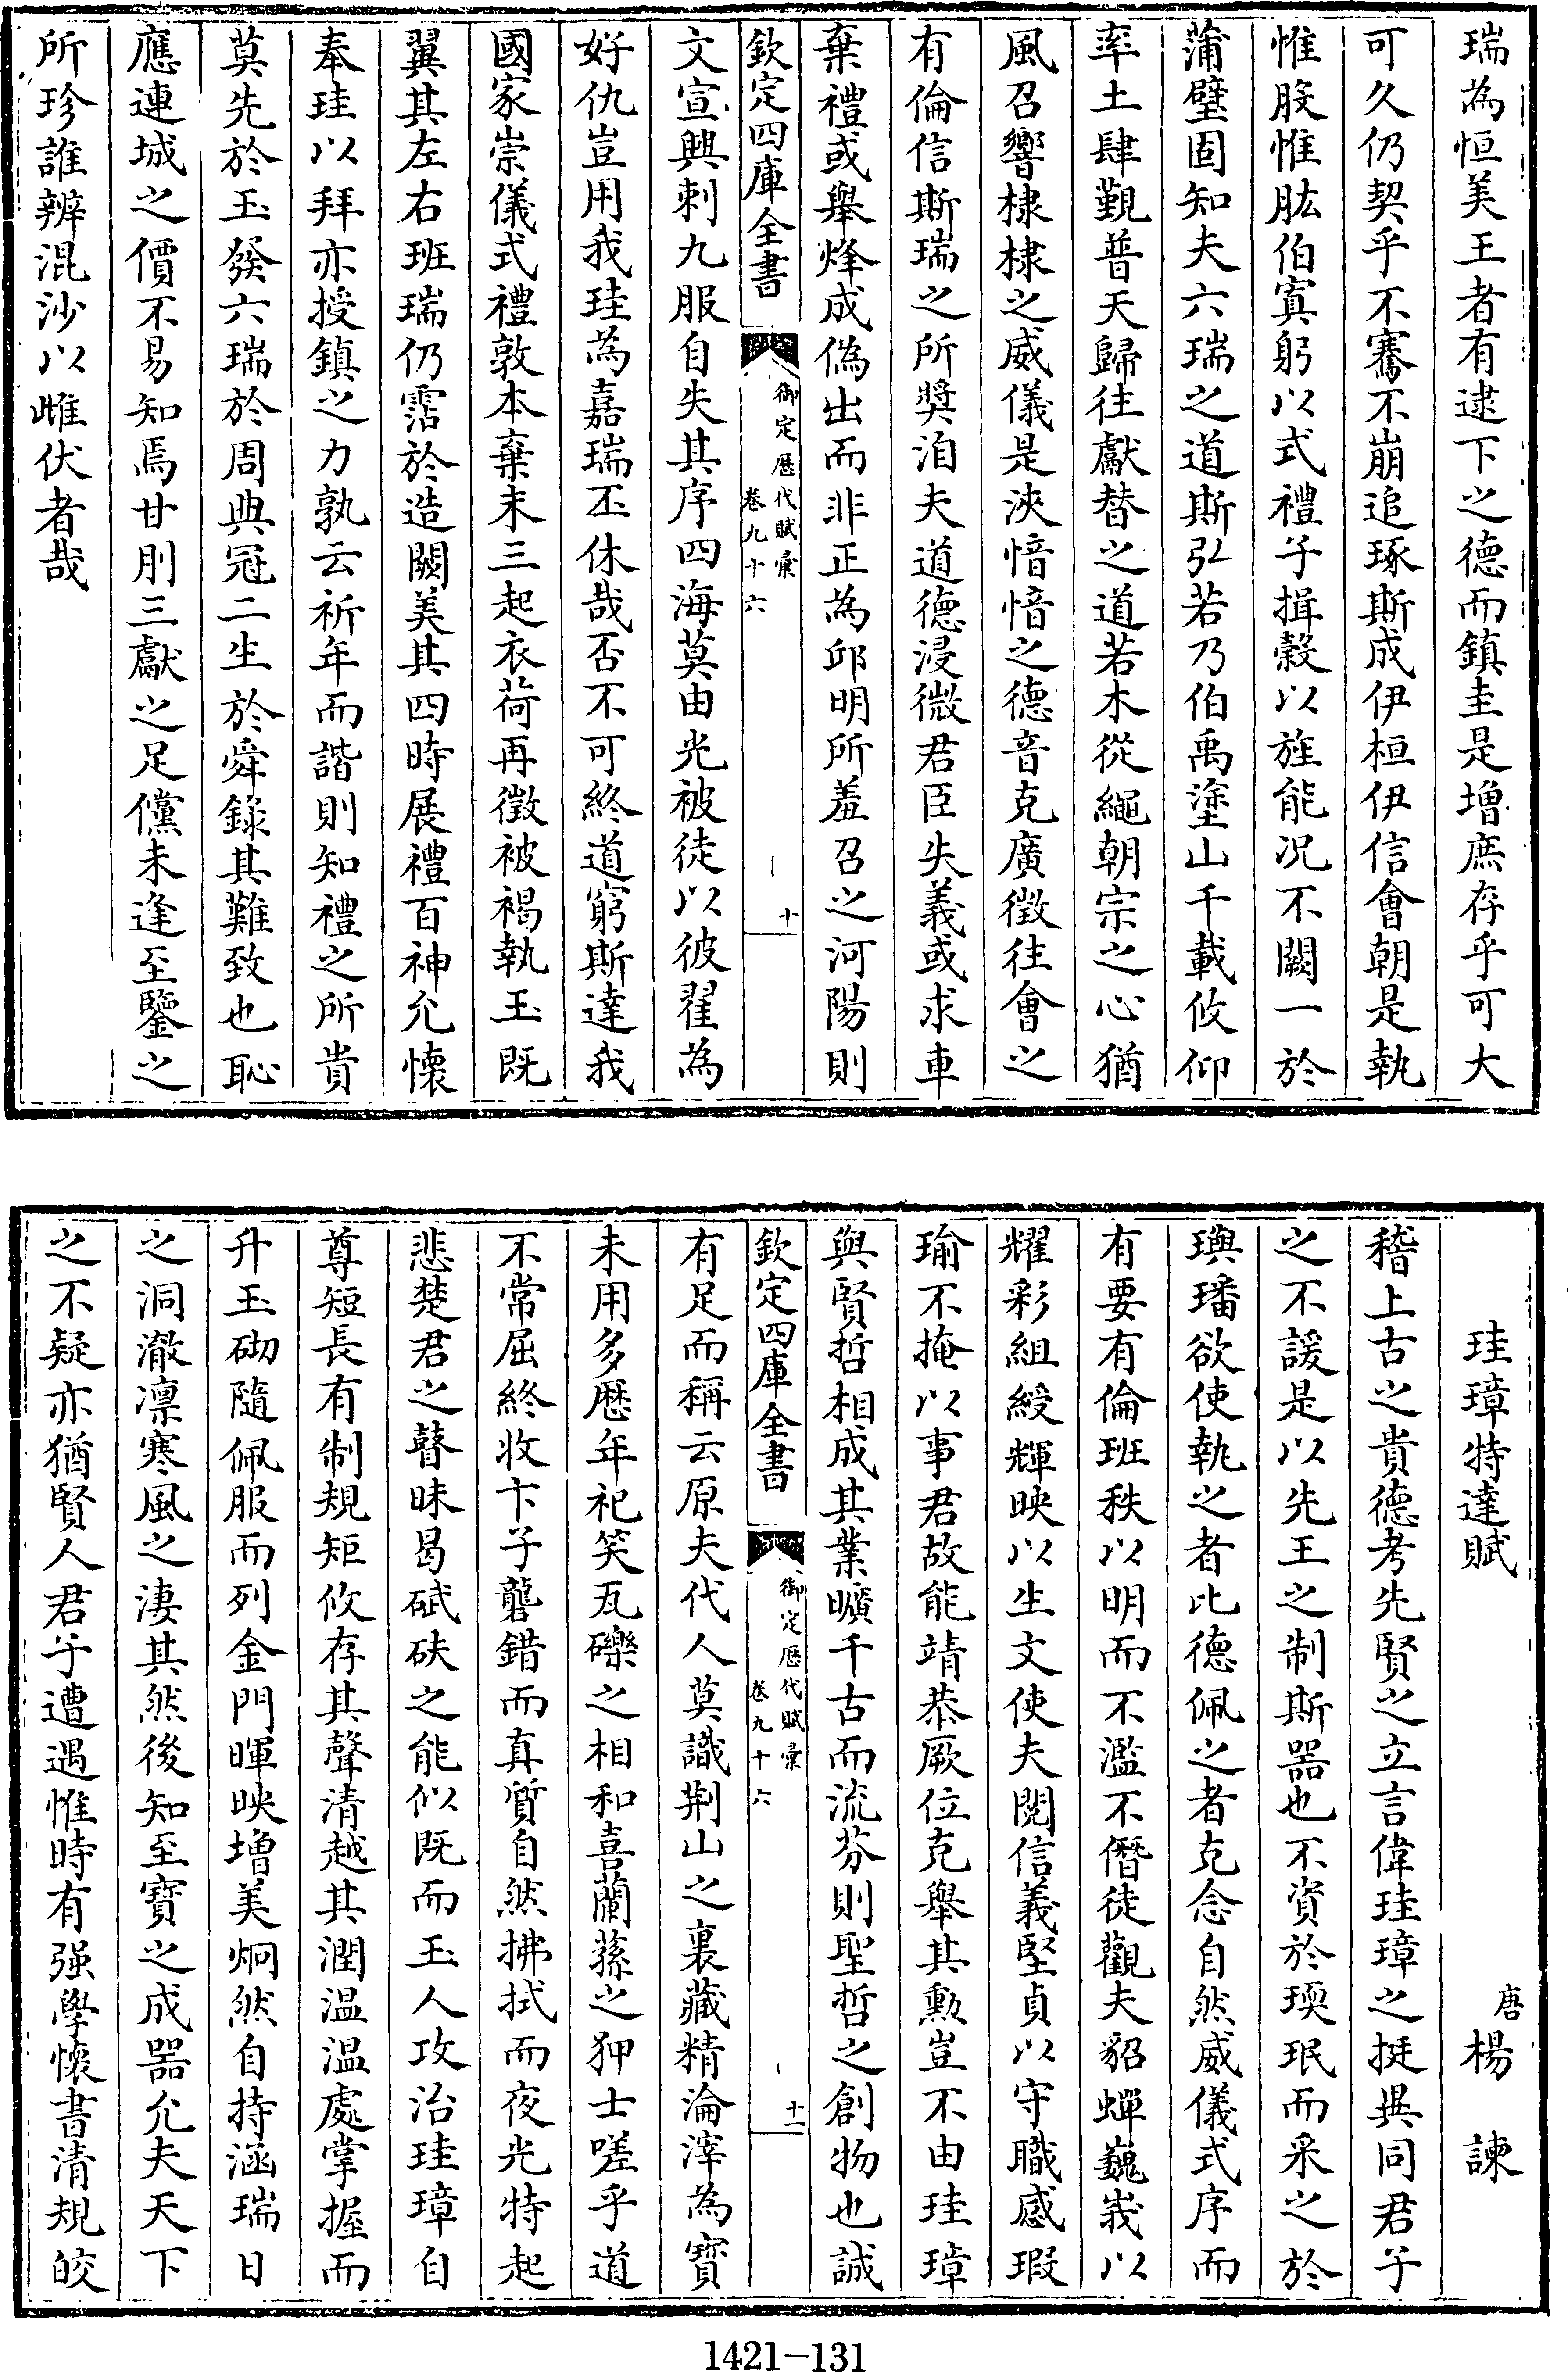 瑞為恒美王者有逮下之德而鎮圭是增庶存乎可大
可久仍契乎不騫不崩追琢斯成伊桓伊信會朝是執
惟股惟肱伯寘躬以式禮子揖穀以旌能况不闕一於
蒲璧固知夫六瑞之道斯弘若乃伯禹塗山千載攸仰
率土肆覲普天歸往獻替之道若木從繩朝宗之心猶
風召響棣棣之威儀是浹愔愔之德音克廣徵往會之
有倫信斯瑞之所奬洎夫道德浸微君臣失義或求車
棄禮或舉烽成偽出而非正為邱明所羞召之河陽則
欽定四庫全書
御定歷代賦彙
卷九十六
十
文宣興刺九服自失其序四海莫由光被徒以彼翟為
好仇豈用我珪為嘉瑞丕休哉否不可終道窮斯達我
國家崇儀式禮敦本棄末三起衣荷再徵被褐執玉既
翼其左右班瑞仍霑於造闕美其四時展禮百神允懷
奉珪以拜亦授鎮之力孰云祈年而諧則知禮之所貴
莫先於玉發六瑞於周典冠二生於舜錄其難致也恥
應連城之價不易知焉甘刖三獻之足儻未逢至鑒之
所珍誰辨混沙以雌伏者哉
珪璋特達賦
唐楊諫
稽上古之貴德考先賢之立言偉珪璋之挺異同君子
之不諼是以先王之制斯器也不資於瑌珉而采之於
璵璠欲使執之者比德佩之者克念自然威儀式序而
有要有倫班秩以明而不濫不僭徒觀夫貂蟬巍峩以
耀彩組綬輝映以生文使夫閲信義堅貞以守職感瑕
瑜不掩以事君故能靖恭厥位克舉其勳豈不由珪璋
與賢哲相成其業曠千古而流芬則聖哲之創物也誠
欽定四庫全書
御定歷代賦彙
卷九十六
十一
有足而稱云原夫代人莫識荆山之裏藏精淪滓為寶
未用多歷年祀笑瓦礫之相和喜蘭蓀之狎士嗟乎道
不常屈終收卞子礱錯而真質自然拂拭而夜光特起
悲楚君之瞽昧曷碔砆之能似既而玉人攻治珪璋自
尊短長有制規矩攸存其聲清越其潤温温處掌握而
升玉砌隨佩服而列金門暉映增美炯然自持涵瑞日
之洞澈凛寒風之淒其然後知至寶之成器允夫天下
之不疑亦猶賢人君子遭遇惟時有强學懷書清規皎
1421-131